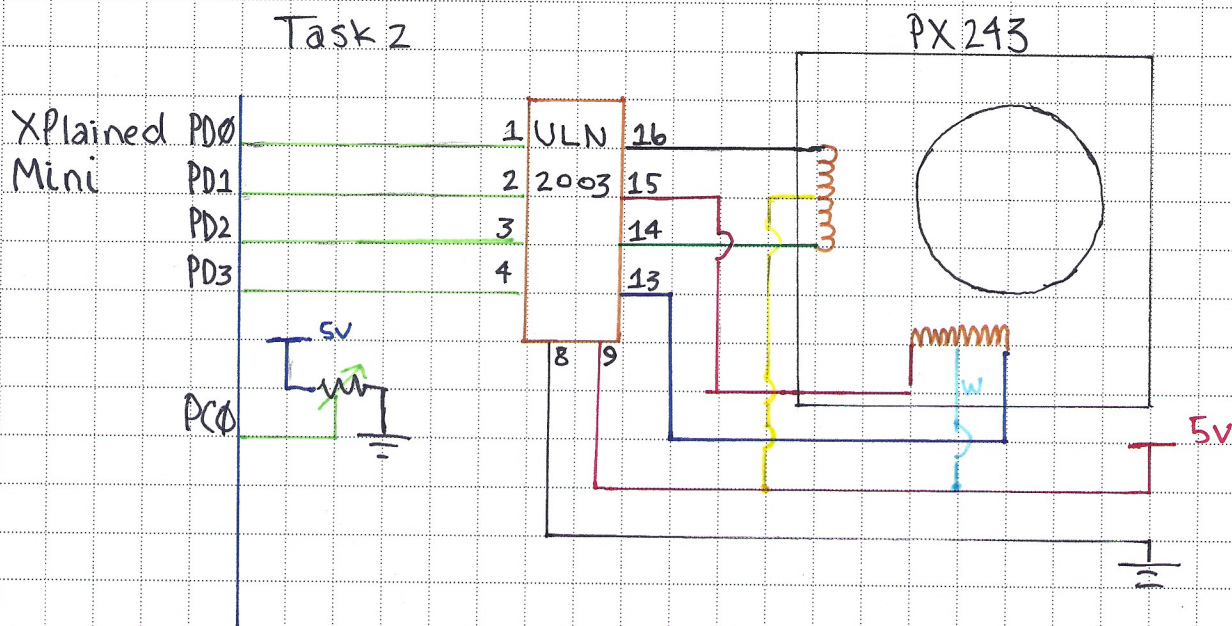 Task 2
PX243
XPlained
Mini
PD0
PD1
PD2
PD3
1
2
3
4
ULN
2003
16
15
14
13
5V
8
9
PC0
W
5V